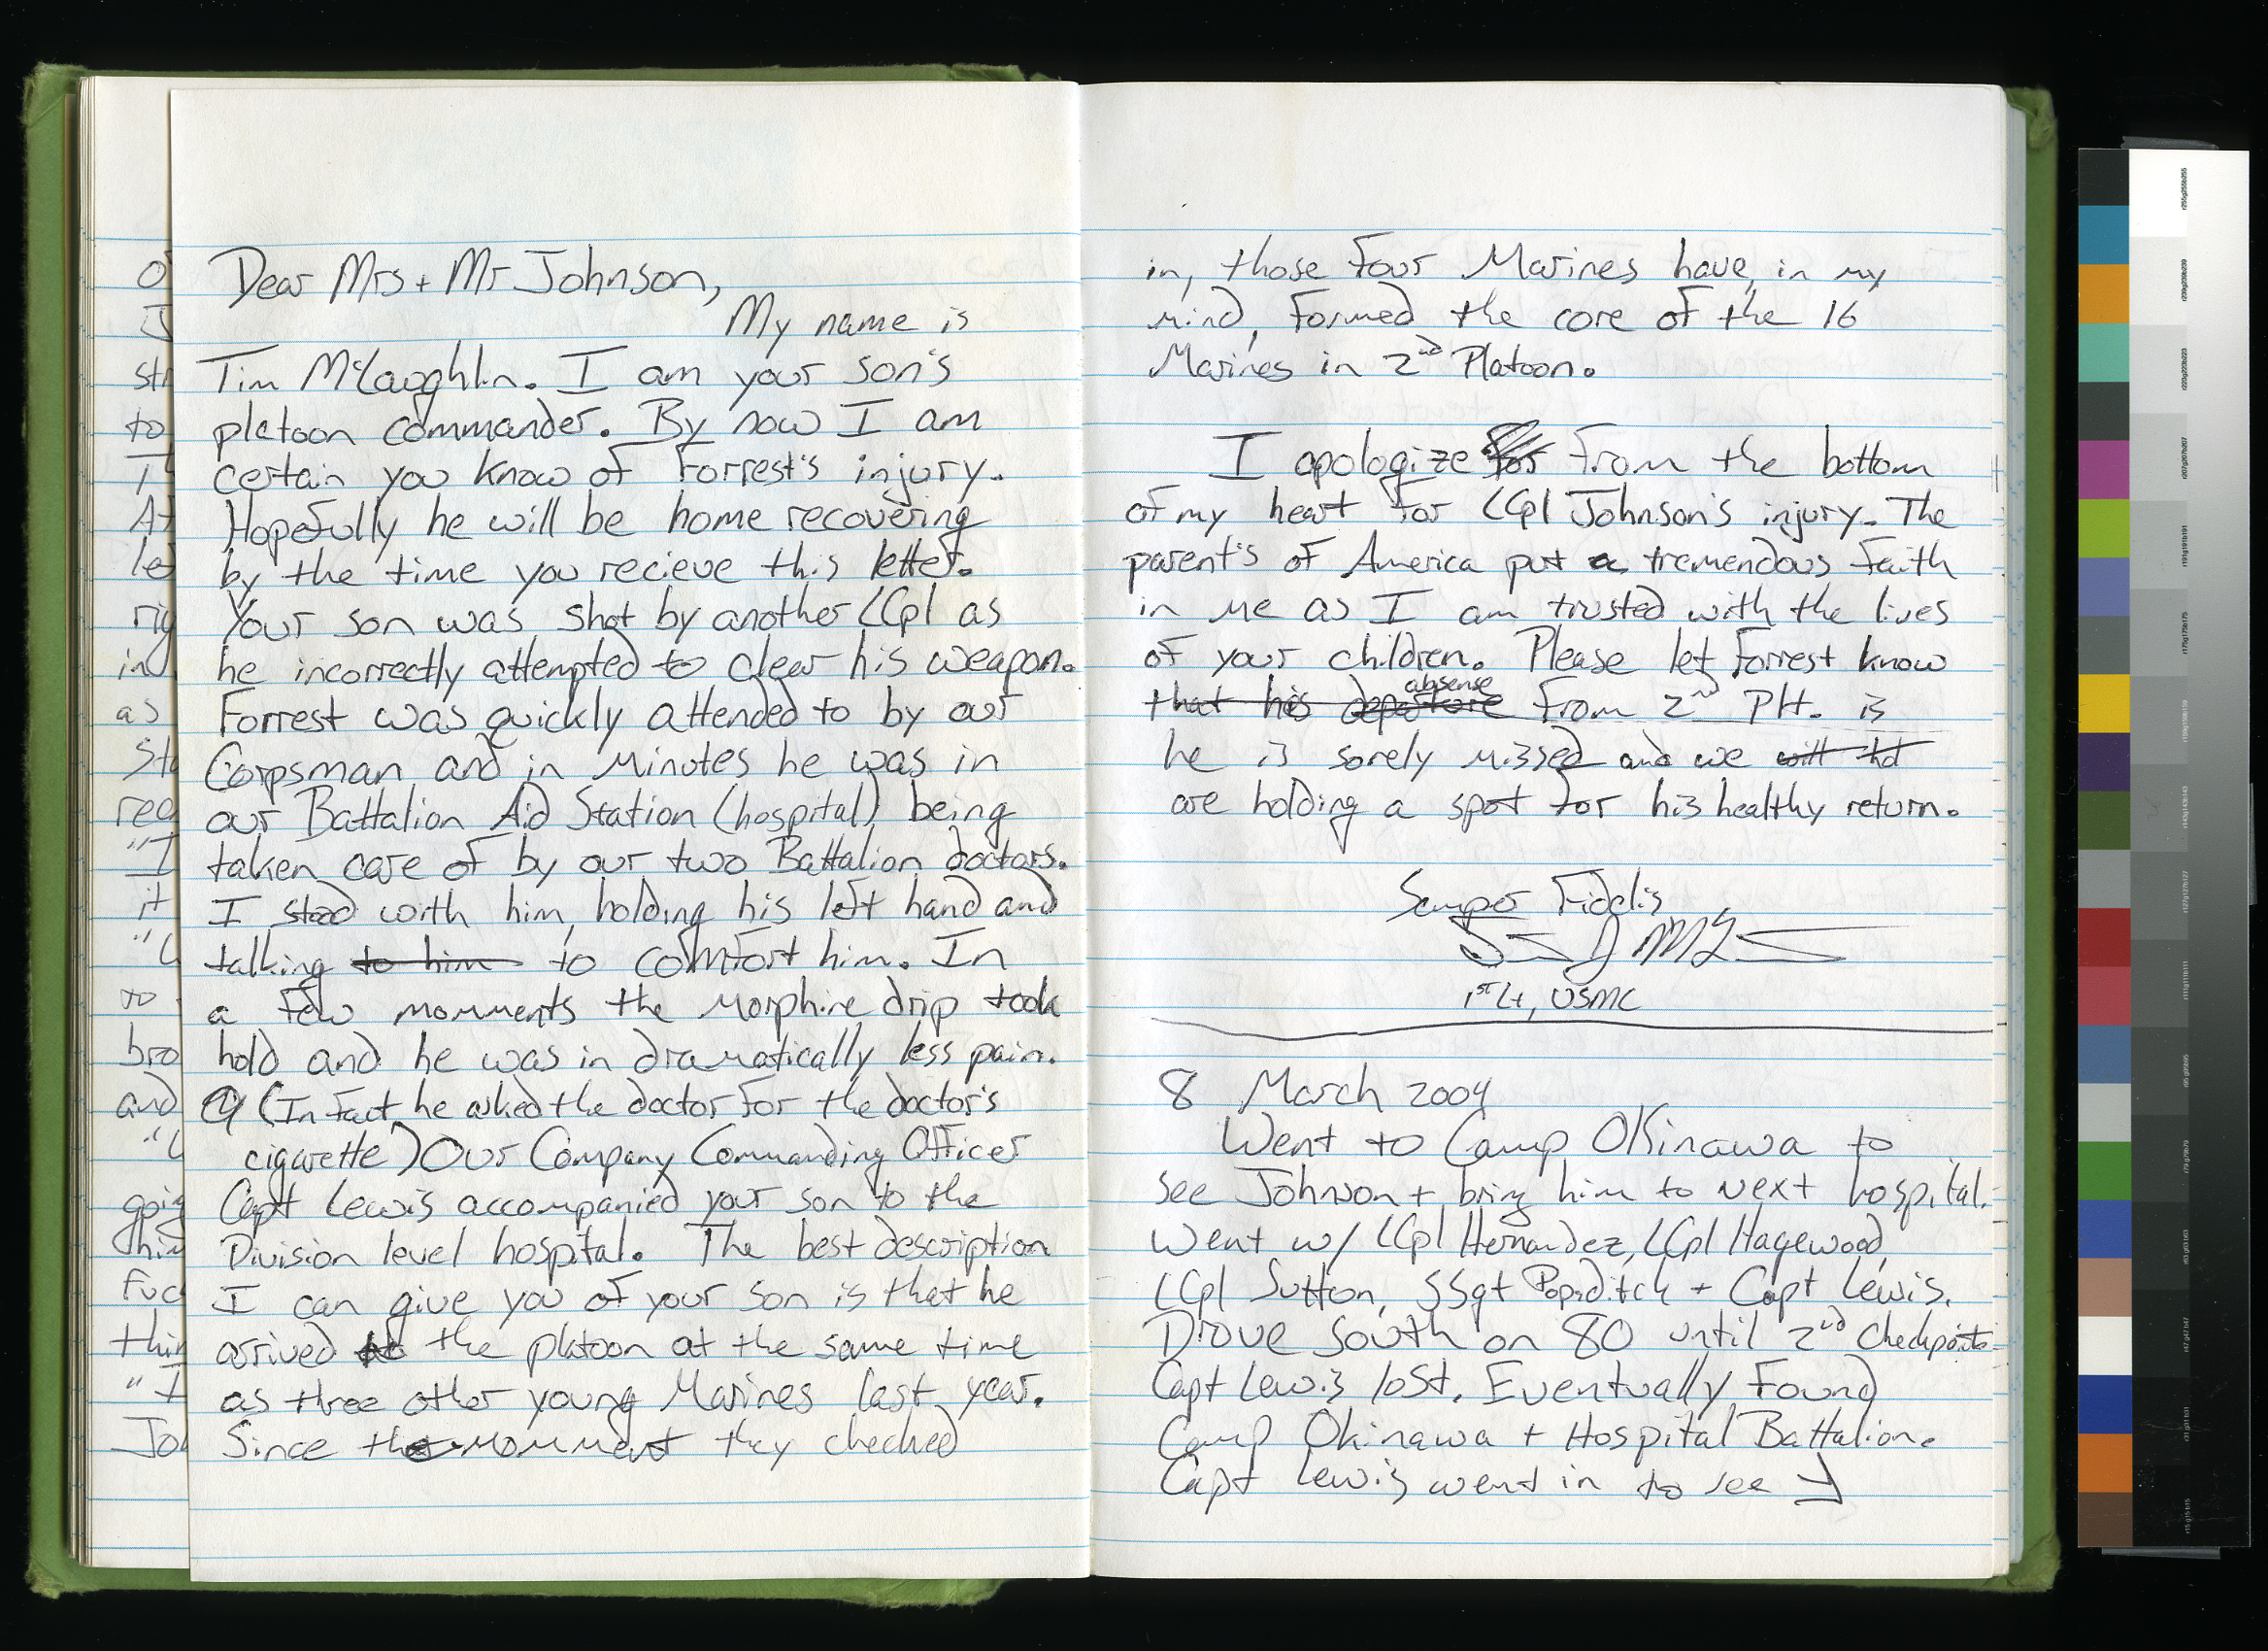 Dear Mrs + Mr Johnson,
My name is
Tim McLaughlin. I am your son's
platoon commander. By now I am
certain you know of Forrest's injury.
Hopefully he will be home recovering
by the time you recieve this letter.
Your son was shot by another LCpl as
he incorrectly attempted to clear his weapon.
Forrest was quickly attended to by our
Corpsman and in minutes he was in
our Battalion Aid Station (hospital) being
taken care of by our two Battalion doctors.
I stood with him, holding his left hand and
talking to him to comfort him. In
a few momments the morphine drip took
hold and he was in dramatically less pain.
(In fact he asked the doctor for the doctor's
cigarette) Our Company Commanding Officer
Capt Lewis accompanied your son to the
Division level hospital. The best description
I can give you of your son is that he
arrived the platoon at the same time
as three other young Marines last year.
Since the momment they checked
in, those four Marines have, in my
mind, formed the core of the 16
Marines in 2nd Platoon.
I apologize for from the bottom
of my heart for LCpl Johnson's injury. The
parent's of America put a tremendous faith
in me as I am trusted with the lives
of your children. Please let Forrest know
absense
that his departure from 2nd Plt. is
he is sorely missed and we will
are holding a spot for his healthy return.
Semper Fidelis
1st Lt, USMC
8 March 2004
Went to Camp Okinawa to
see Johnson + bring him to next hospital.
Went w/ LCpl Hernandez, LCpl Hagewood,
LCpl Sutton, SSgt Popaditch + Capt Lewis.
Drove south on 80 until 2nd checkpoint.
Capt Lewis lost. Eventually found
Camp Okinawa + Hospital Battalion.
Capt Lewis went in to see